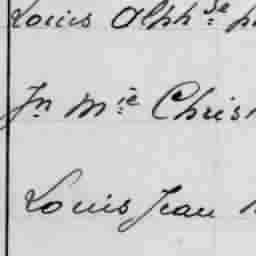 Louis Alphse
Jn Mie Chris
Louis Jean